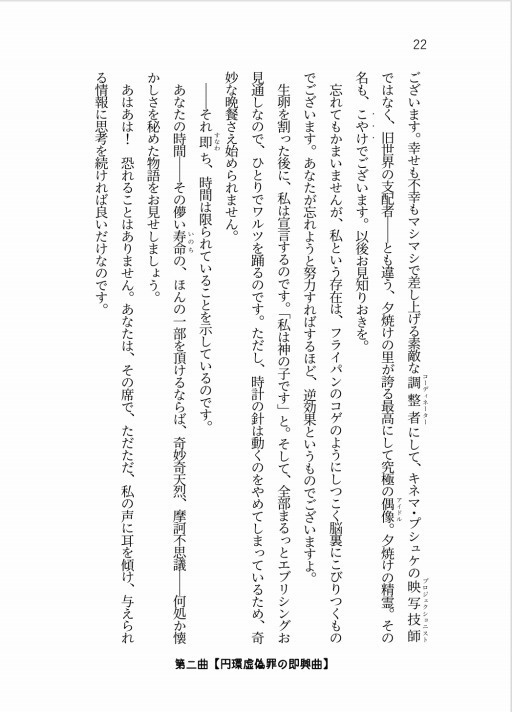 22
ございます。幸せも不幸もマシマシで差し上げる素敵な調整者にして、キネマ・プシュケの映写技師
コーディネーター
プロジェクショニスト
ではなく、旧世界の支配者――とも違う、夕焼けの里が誇る最高にして究極の偶像。夕焼けの精霊。その
アイドル
名も、こやけでございます。以後お見知りおきを。
忘れてもかまいませんが、私という存在は、フライパンのコゲのようにしつこく脳裏にこびりつくもの
でございます。あなたが忘れようと努力すればするほど、逆効果というものでございますよ。
生卵を割った後に、私は宣言するのです。「私は神の子です」と。そして、全部まるっとエブリシングお
見通しなので、ひとりでワルツを踊るのです。ただし、時計の針は動くのをやめてしまっているため、奇
妙な晩餐さえ始められません。
――それ即ち、時間は限られていることを示しているのです。
すなわ
あなたの時間――その儚い寿命の、ほんの一部を頂けるならば、奇妙奇天烈、摩訶不思議――何処か懐
いのち
かしさを秘めた物語をお見せしましょう。
あはあは！　恐れることはありません。あなたは、その席で、ただただ、私の声に耳を傾け、与えられ
る情報に思考を続ければ良いだけなのです。
第二曲【円環虚偽罪の即興曲】